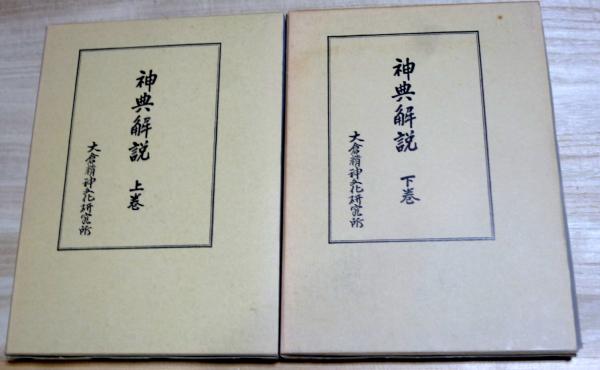 神典解説
上巻
大倉精神文化研究所
神典解説
下巻
大倉精神文化研究所